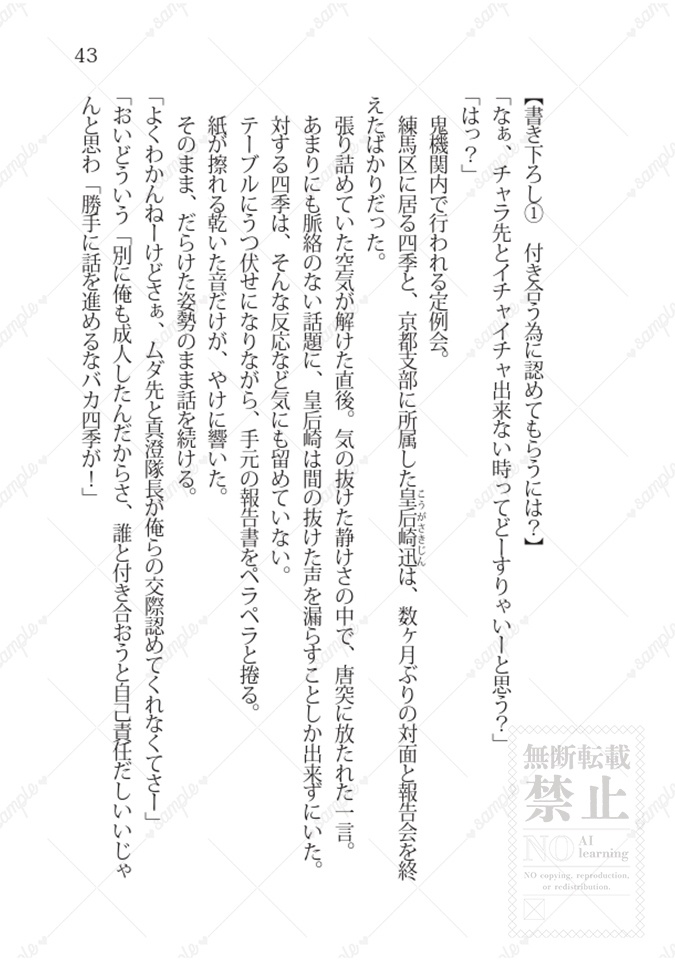 43
【書き下ろし① 付き合う為に認めてもらうには?】
「なぁ、チャラ先とイチャイチャ出来ない時ってどーすりゃいーと思う?」
「はっ?」
鬼機関内で行われる定例会。
練馬区に居る四季と、京都支部に所属した皇后崎迅は、数ヶ月ぶりの対面と報告会を終
こうがさきじん
えたばかりだった。
張り詰めていた空気が解けた直後。気の抜けた静けさの中で、唐突に放たれた一言。
あまりにも脈絡のない話題に、皇后崎は間の抜けた声を漏らすことしか出来ずにいた。
対する四季は、そんな反応など気にも留めていない。
テーブルにうつ伏せになりながら、手元の報告書をペラペラと捲る。
紙が擦れる乾いた音だけが、やけに響いた。
そのまま、だらけた姿勢のまま話を続ける。
「よくわかんねーけどさぁ、ムダ先と真澄隊長が俺らの交際認めてくれなくてさー」
「おいどういう「別に俺も成人したんだからさ、誰と付き合おうと自己責任だしいいじゃ
んと思わ「勝手に話を進めるなバカ四季が!」
無断転載
禁止
NO AI learning
NO copying, reproduction,
or redistribution.
sample